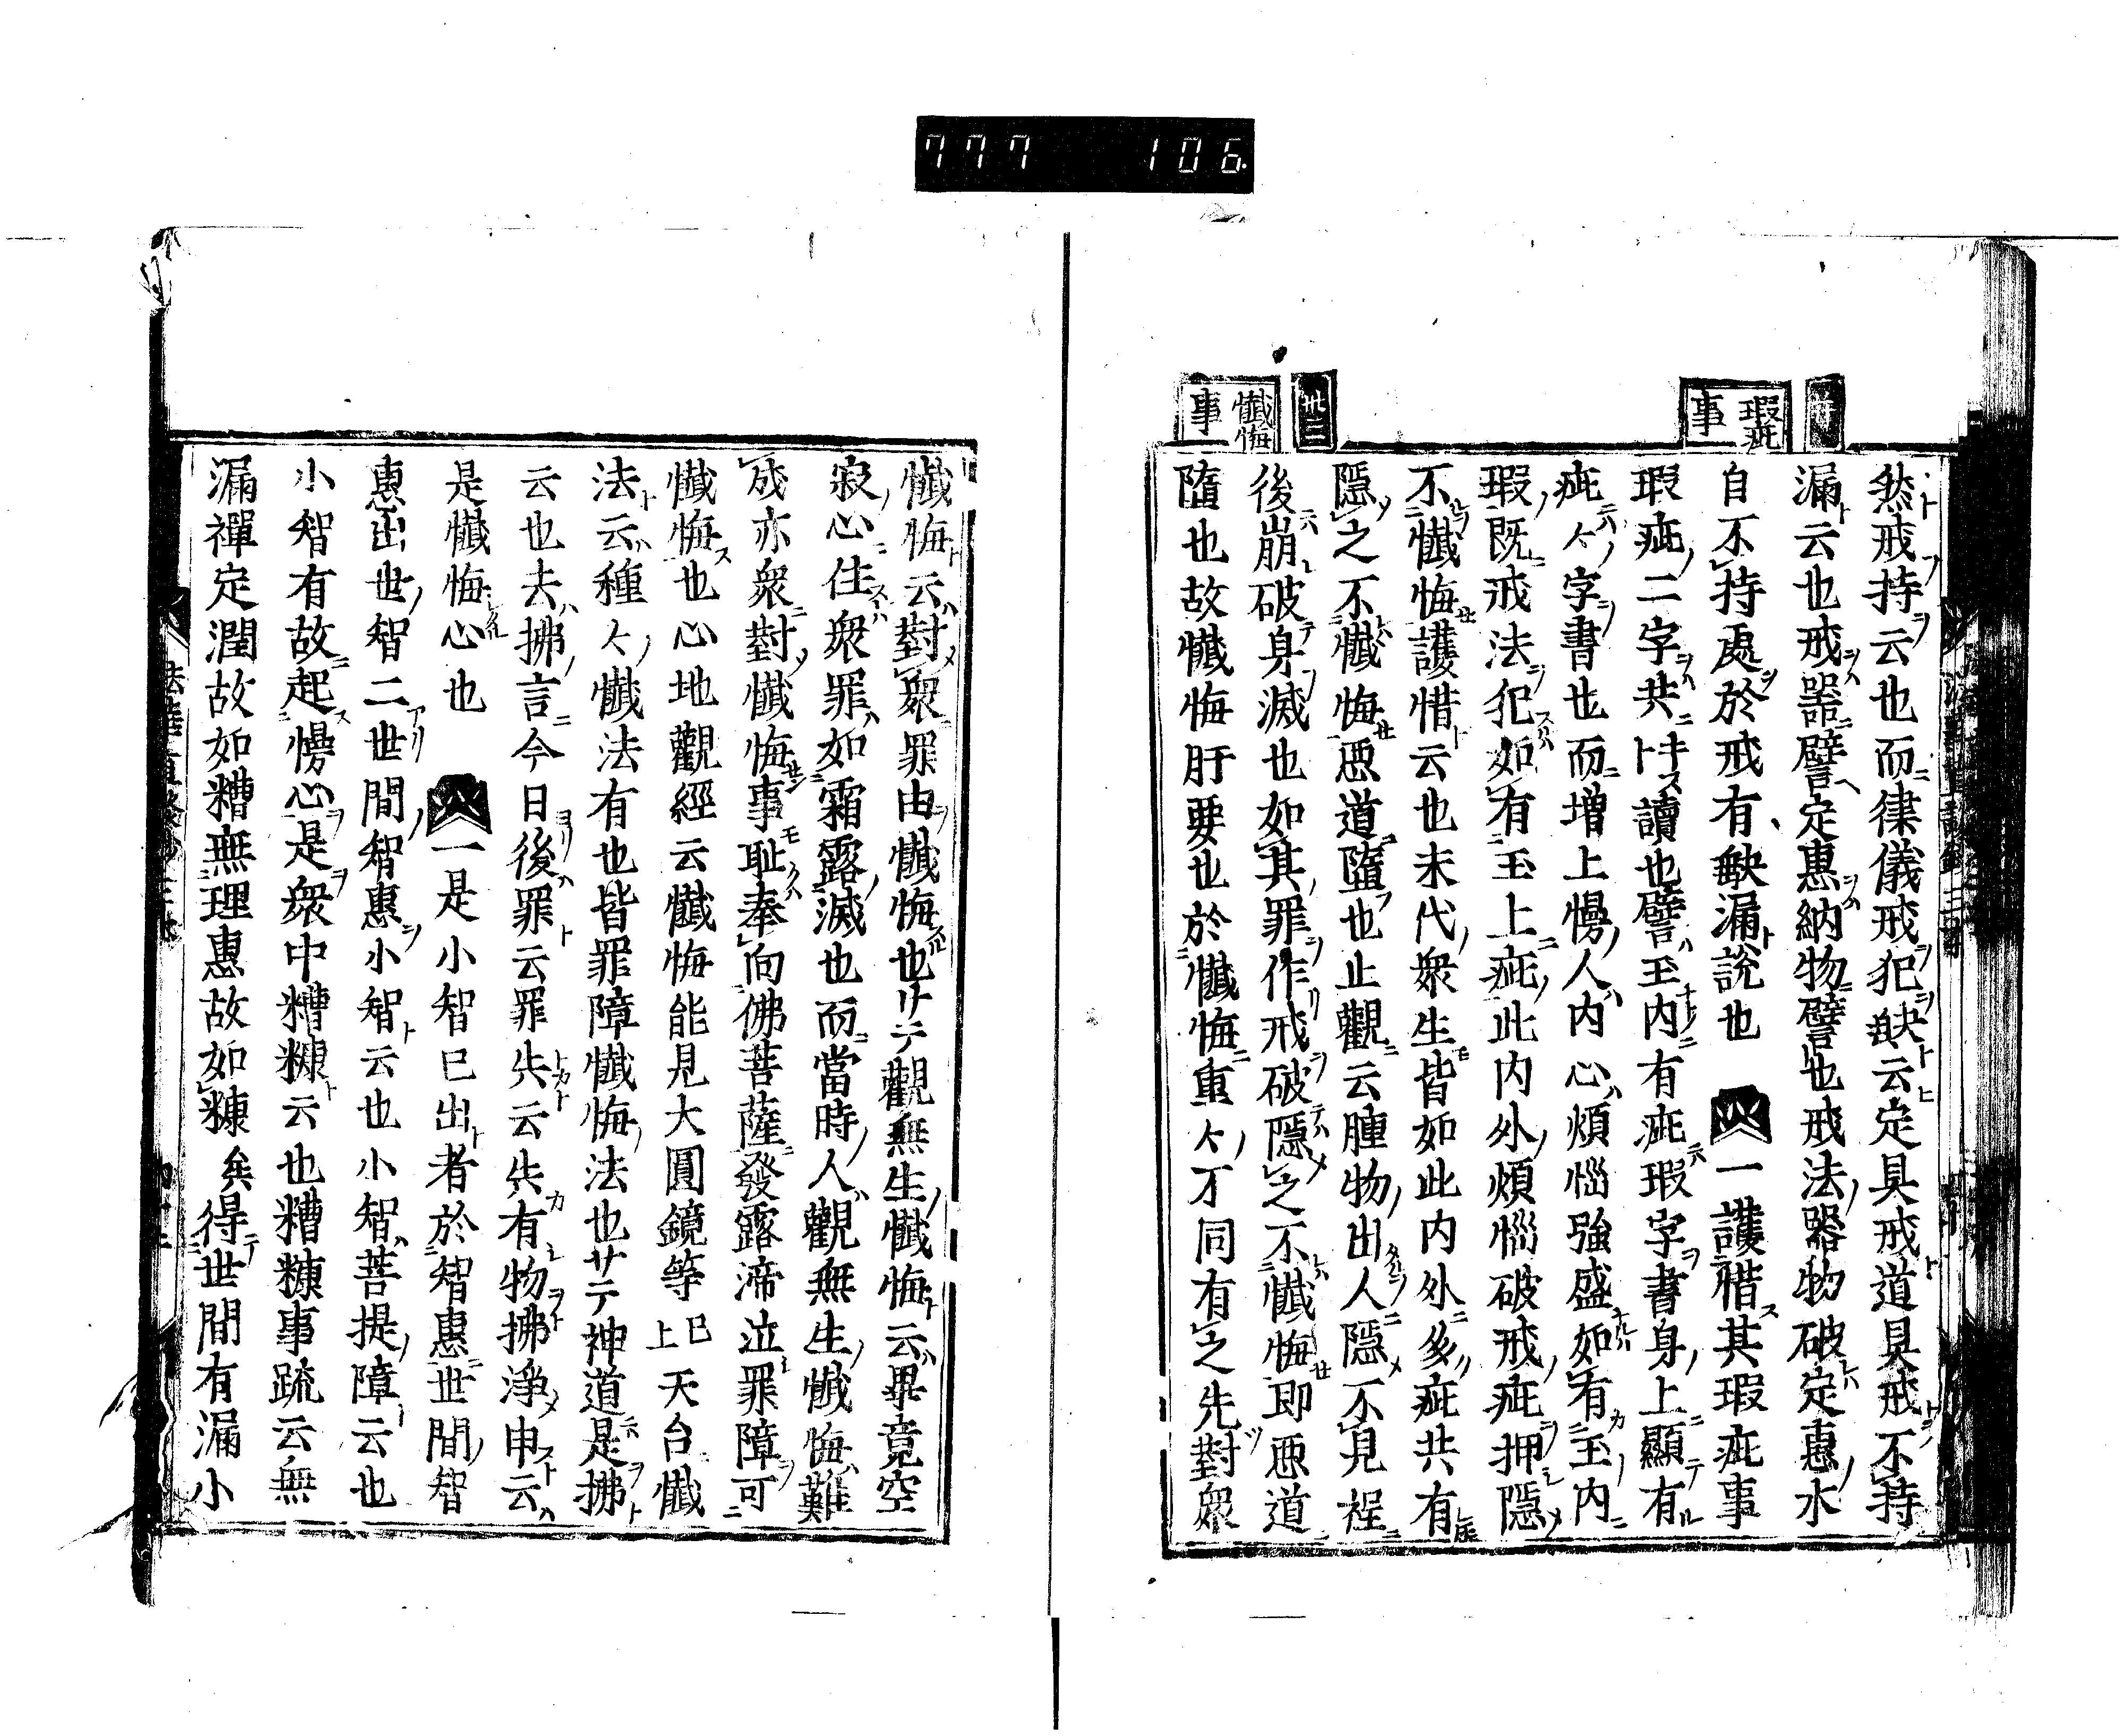 777 106
瑕疵事
卅二
懺悔事
然戒持云也而律儀戒犯缺云定具戒道具戒不持
漏云也戒器譬定惠納物譬也戒法器物破定惠水
自不持處於戒有缺漏說也 一護惜其瑕疵事
瑕疵二字共キストト讀也譬玉内有疵瑕字書身上顯有
疵々字書也而增上慢人内心煩惱強盛如有玉内
瑕既戒法犯如有玉上疵此内外煩惱破戒疵押隱
不懺悔護惜云也末代衆生皆如此内外多疵共有
隱之不懺悔惡道墮也止觀云腫物出人隱不見程
後崩破身滅也如其罪作戒破隱之不懺悔即惡道
墮也故懺悔肝要也於懺悔重々不同有之先對衆
懺悔云對衆罪由懺悔也サテ觀無生懺悔云畢竟空
寂心住衆罪如霜露滅也而當時人觀無生懺悔難
成亦衆對懺悔事耻奉向佛菩薩發露渧泣罪障可
懺悔也心地觀經云懺悔能見大圓鏡等已上天台懺
法云種々懺法有也皆罪障懺悔法也サテ神道是拂
云也去拂言今日後罪云罪失云失有物拂淨申云
是懺悔心也 一是小智已出者於智惠世間智
惠出世智二世間智惠小智云也小智菩提障云也
小智有故起慢心是衆中糟糠云也糟糠事疏云無
漏禪定潤故如糟無理惠故如糠矣得世間有漏小